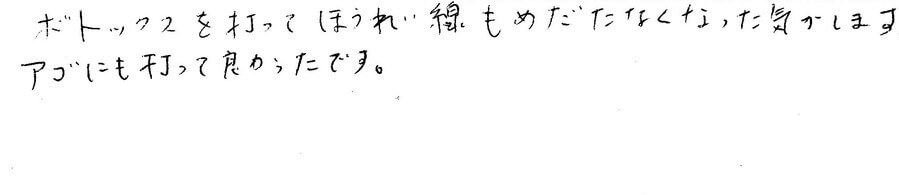 ボトックスを打ってほうれい線もめだたなくなった気がします
アゴにも打って良かったです。